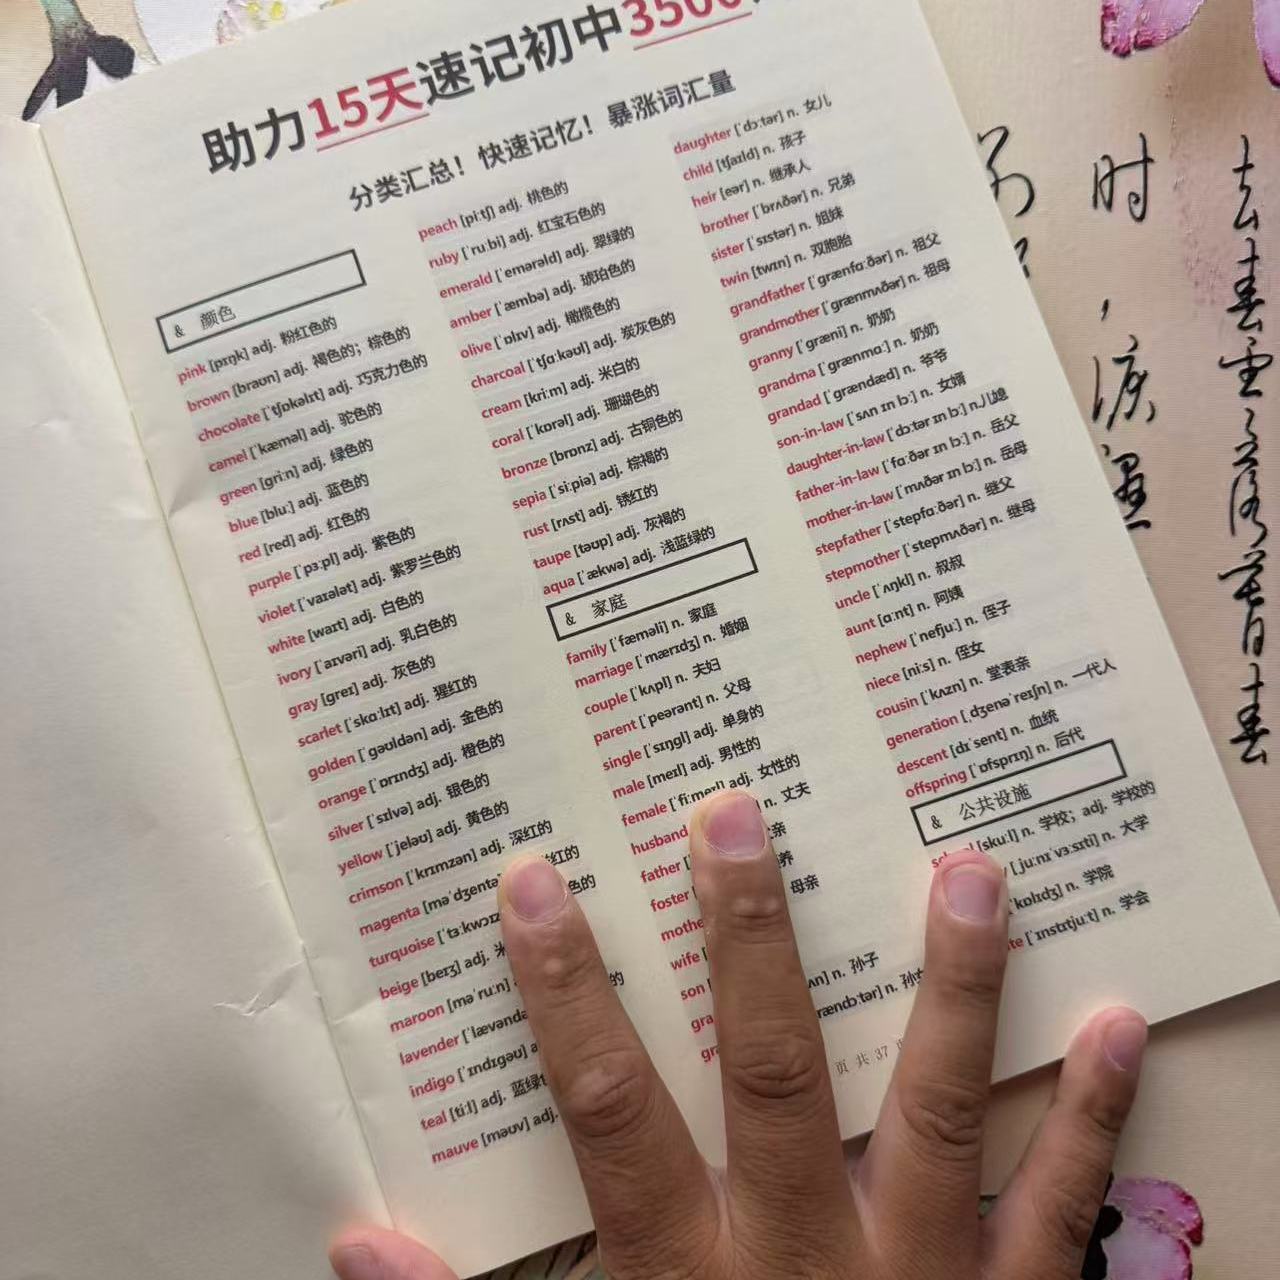 助力15天速记初中3500
分类汇总！快速记忆！暴涨词汇量
& 颜色
pink [pɪŋk] adj. 粉红色的
brown [braʊn] adj. 褐色的；棕色的
chocolate [ˈtʃɒkəlɪt] adj. 巧克力色的
camel [ˈkæməl] adj. 驼色的
green [ɡriːn] adj. 绿色的
blue [bluː] adj. 蓝色的
red [red] adj. 红色的
purple [ˈpɜːpl] adj. 紫色的
violet [ˈvaɪələt] adj. 紫罗兰色的
white [waɪt] adj. 白色的
ivory [ˈaɪvəri] adj. 乳白色的
gray [ɡreɪ] adj. 灰色的
scarlet [ˈskɑːlɪt] adj. 猩红的
golden [ˈɡəʊldən] adj. 金色的
orange [ˈɒrɪndʒ] adj. 橙色的
silver [ˈsɪlvə] adj. 银色的
yellow [ˈjeləʊ] adj. 黄色的
crimson [ˈkrɪmzən] adj. 深红的
magenta [məˈdʒentə] 红的
turquoise [ˈtɜːkwɔɪz 色的
beige [beɪʒ] adj. 米
maroon [məˈruːn] 的
lavender [ˈlævəndə
indigo [ˈɪndɪɡəʊ] a
teal [tiːl] adj. 蓝绿
mauve [məʊv] adj.
peach [piːtʃ] adj. 桃色的
ruby [ˈruːbi] adj. 红宝石色的
emerald [ˈemərəld] adj. 翠绿的
amber [ˈæmbə] adj. 琥珀色的
olive [ˈɒlɪv] adj. 橄榄色的
charcoal [ˈtʃɑːkəʊl] adj. 炭灰色的
cream [kriːm] adj. 米白的
coral [ˈkɒrəl] adj. 珊瑚色的
bronze [brɒnz] adj. 古铜色的
sepia [ˈsiːpiə] adj. 棕褐的
rust [rʌst] adj. 锈红的
taupe [təʊp] adj. 灰褐的
aqua [ˈækwə] adj. 浅蓝绿的
& 家庭
family [ˈfæməli] n. 家庭
marriage [ˈmærɪdʒ] n. 婚姻
couple [ˈkʌpl] n. 夫妇
parent [ˈpeərənt] n. 父母
single [ˈsɪŋɡl] adj. 单身的
male [meɪl] adj. 男性的
female [ˈfiːmeɪl] adj. 女性的
husband n. 丈夫
father [ 亲
foster 养
mothe 母亲
wife [
son [
gra ʌn] n. 孙子
gr rændɔːtər] n. 孙女
daughter [ˈdɔːtər] n. 女儿
child [tʃaɪld] n. 孩子
heir [eər] n. 继承人
brother [ˈbrʌðər] n. 兄弟
sister [ˈsɪstər] n. 姐妹
twin [twɪn] n. 双胞胎
grandfather [ˈɡrænfɑːðər] n. 祖父
grandmother [ˈɡrænmʌðər] n. 祖母
granny [ˈɡræni] n. 奶奶
grandma [ˈɡrænmɑː] n. 奶奶
grandad [ˈɡrændæd] n. 爷爷
son-in-law [ˈsʌn ɪn lɔː] n. 女婿
daughter-in-law [ˈdɔːtər ɪn lɔː] n.儿媳
father-in-law [ˈfɑːðər ɪn lɔː] n. 岳父
mother-in-law [ˈmʌðər ɪn lɔː] n. 岳母
stepfather [ˈstepfɑːðər] n. 继父
stepmother [ˈstepmʌðər] n. 继母
uncle [ˈʌŋkl] n. 叔叔
aunt [ɑːnt] n. 阿姨
nephew [ˈnefjuː] n. 侄子
niece [niːs] n. 侄女
cousin [ˈkʌzn] n. 堂表亲
generation [ˌdʒenəˈreɪʃn] n. 一代人
descent [dɪˈsent] n. 血统
offspring [ˈɒfsprɪŋ] n. 后代
& 公共设施
school [skuːl] n. 学校；adj. 学校的
[ˌjuːnɪˈvɜːsɪti] n. 大学
ˈkɒlɪdʒ] n. 学院
te [ˈɪnstɪtjuːt] n. 学会
页 共 37 页